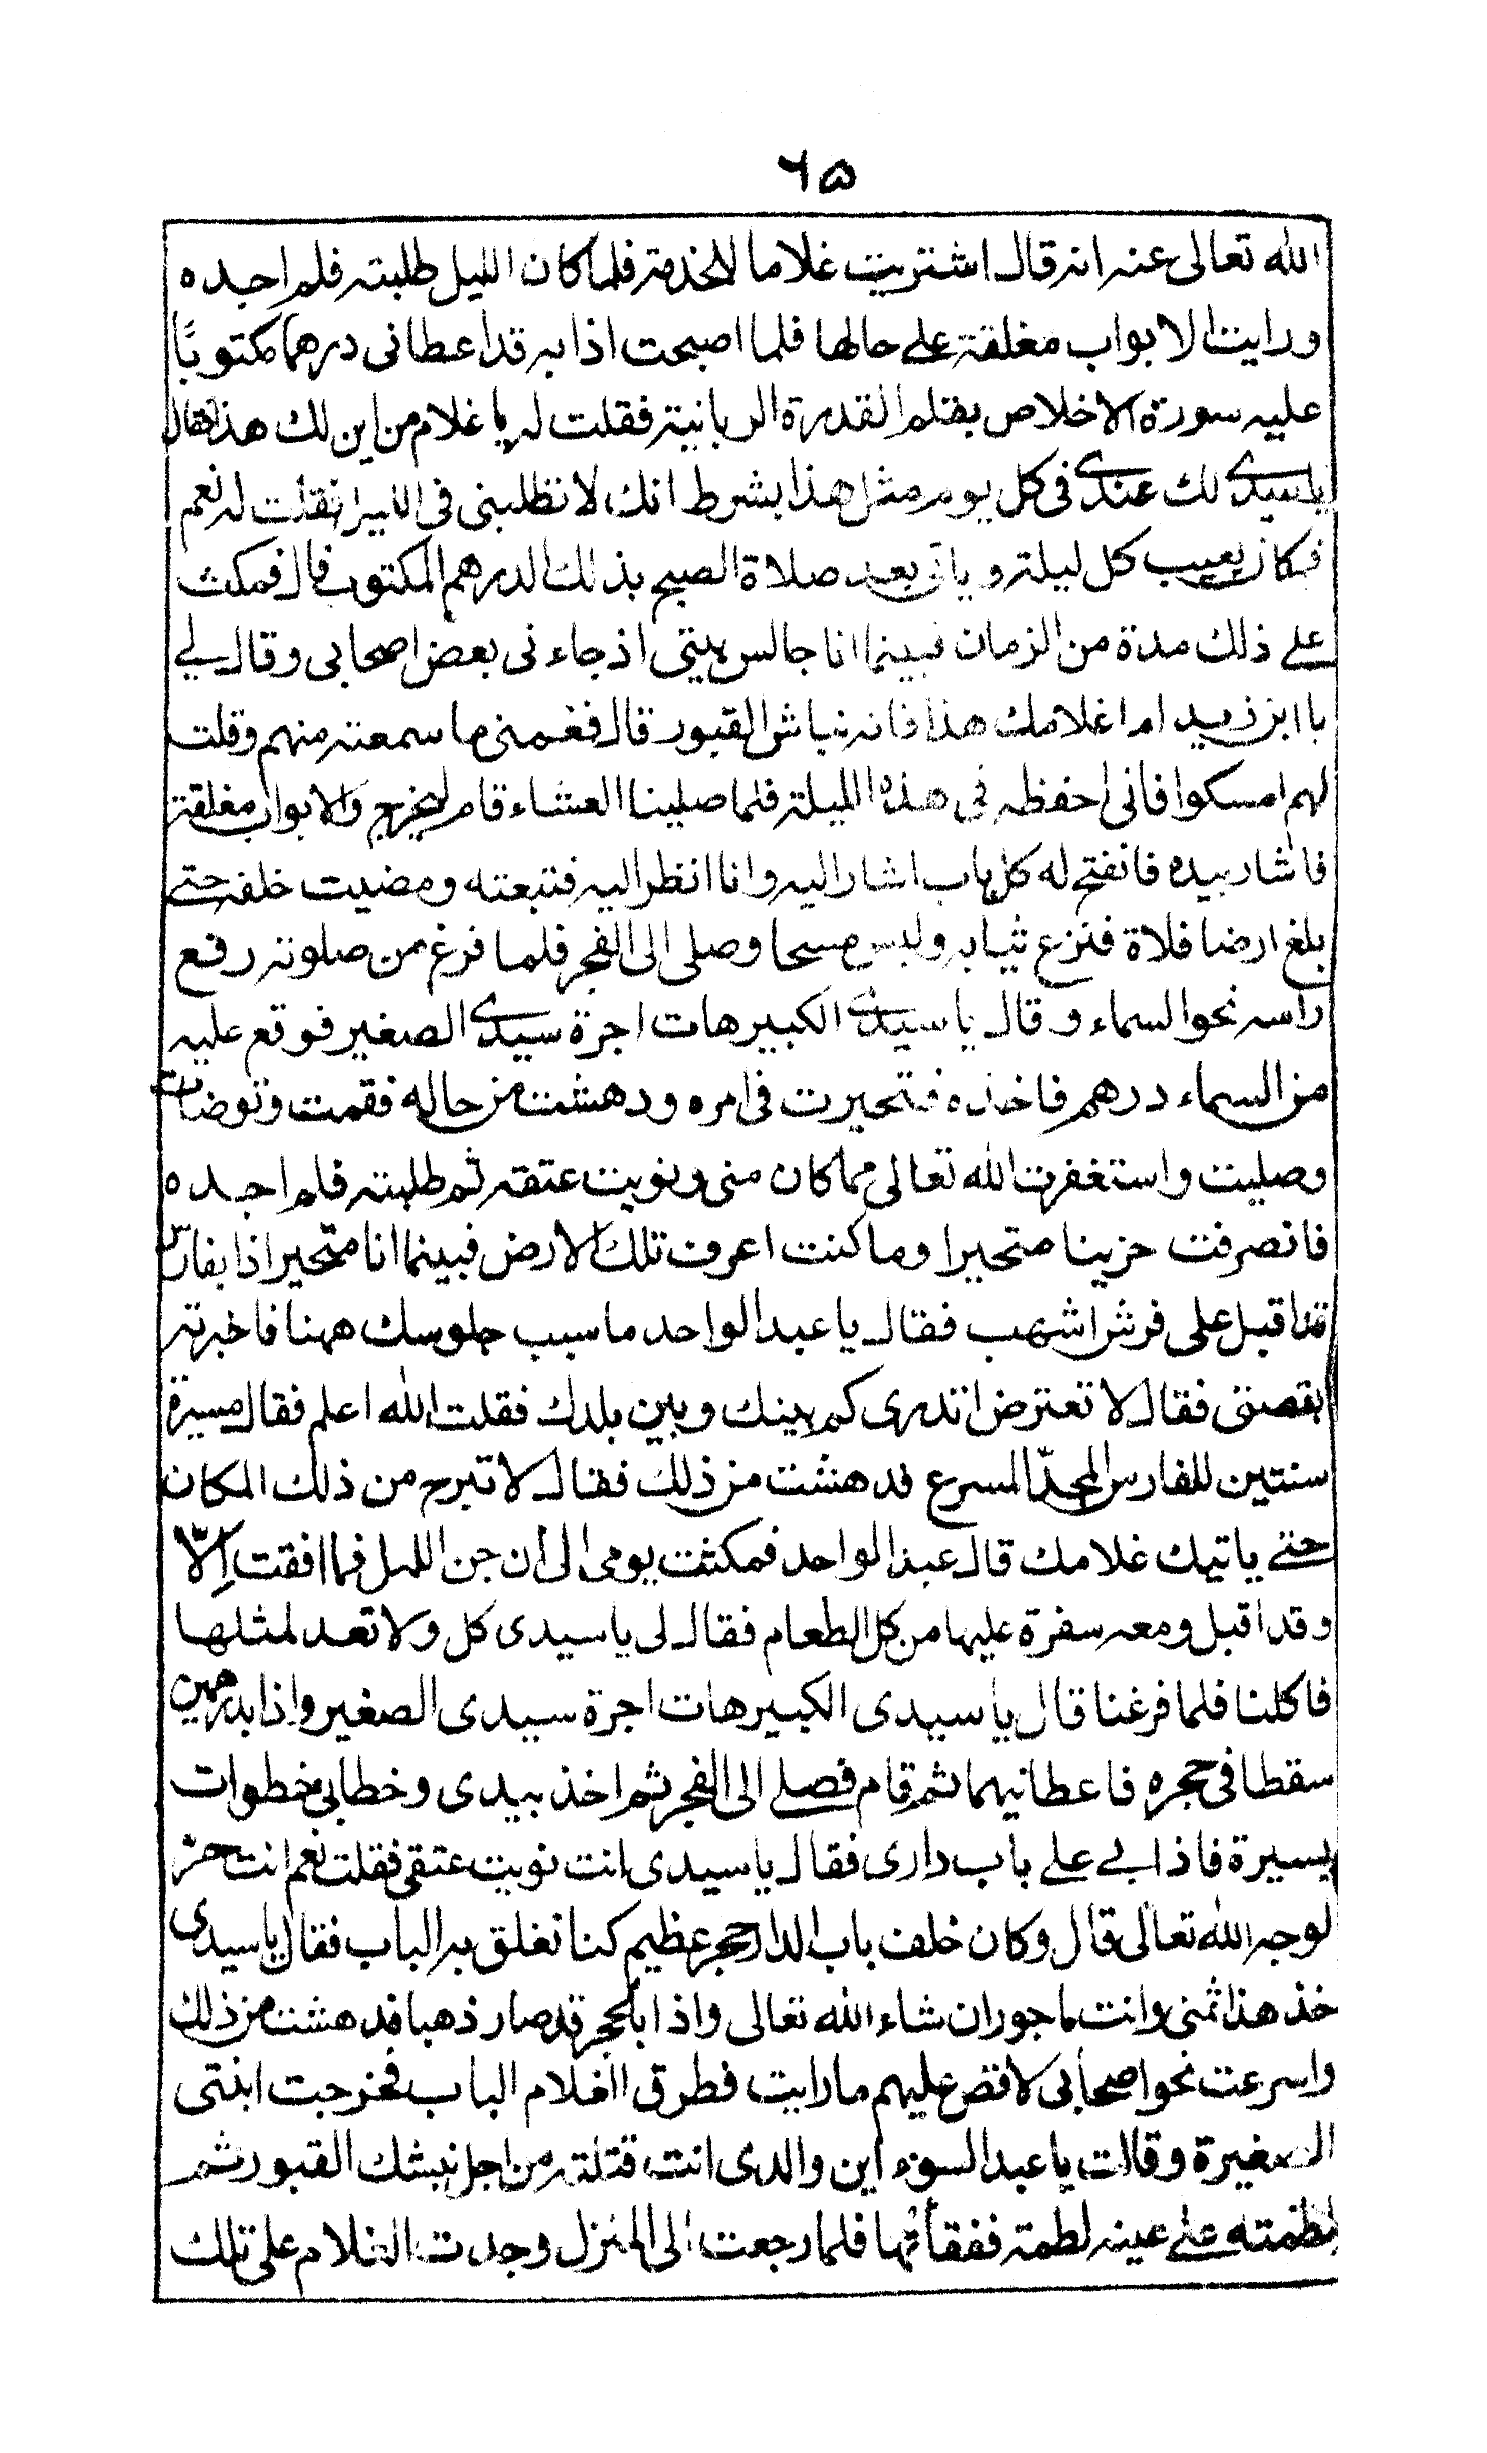 ٦٥
الله تعالى عنه انه قال اشتريت غلاما لاخدمة فلما كان الليل طلبته فلم اجده
ورايت الابواب مغلقة على حالها فلما اصبحت اذا به قد اعطانى درهما مكتوبًا
عليه سورة الاخلاص بقلم القدرة الربانية فقلت له يا غلام من اين لك هذا فقال
يا سيدى لك عندى فى كل يوم مثل هذا بشرط انك لا تطلبنى فى الليل فقلت له نعم
فكان يغيب كل ليلة و ياتى بعد صلاة الصبح بذلك الدرهم المكتوب قال فمكث
على ذلك مدة من الزمان فبينما انا جالس بيتى اذ جاءنى بعض اصحابى وقال لى
يا ابن زيد اما غلامك هذا فانه نباش القبور قال فغمنى ما سمعته منهم وقلت
لهم امسكوا فانى احفظه فى هذه الليلة فلما صلينا العشاء قام ليخرج والابواب مغلقة
فاشار بيده فانفتح له كل باب اشار اليه وانا انظر اليه فتبعته ومضيت خلفه حتى
بلغ ارضا فلاة فنزع ثيابه ولبس مسحا وصلى الى الفجر فلما فرغ من صلوته رفع
راسه نحو السماء وقال يا سيدى الكبير هات اجرة سيدى الصغير فوقع عليه
من السماء درهم فاخذه فتحيرت فى امره ودهشت من حاله فقمت وتوضات
وصليت واستغفرت الله تعالى مما كان منى ونويت عتقه ثم طلبته فلم اجده
فانصرفت حزينا متحيرا وما كنت اعرف تلك الارض فبينما انا متحيرا اذا بفارس
قد اقبل على فرش اشهب فقال يا عبد الواحد ما سبب جلوسك ههنا فاخبرته
بقصتى فقال لا تعترض اتدرى كم بينك وبين بلدك فقلت الله اعلم فقال مسيرة
سنتين للفارس المجدّ المسرع فدهشت من ذلك فقال لا تبرح من ذلك المكان
حتى ياتيك غلامك قال عبد الواحد فمكثت يومى الى ان جن الليل فما افقت اِلّا
وقد اقبل ومعه سفرة عليها من كل الطعام فقال لى يا سيدى كل ولا تعد لمثلها
فاكلنا فلما فرغنا قال يا سيدى الكبير هات اجرة سيدى الصغير واذا بدرهمين
سقطا فى حجره فاعطانيهما ثم قام فصلى الى الفجر ثم اخذ بيدى وخطا بى خطوات
يسيرة فاذا بى على باب دارى فقال يا سيدى انت نويت عتقى فقلت نعم انت حر
لوجه الله تعالى قال وكان خلف باب الدار حجر عظيم كنا نغلق به الباب فقال يا سيدى
خذ هذا ثمنى وانت ماجور ان شاء الله تعالى واذا بالحجر قد صار ذهبا فدهشت من ذلك
واسرعت نحو اصحابى لاقص عليهم ما رايت فطرق الغلام الباب فخرجت ابنتى
الصغيرة وقالت يا عبد السوء اين والدى انت قتلته من اجل نبشك القبور ثم
لطمته على عينه لطمة ففقأتها فلما رجعت الى المنزل وجدت الغلام على تلك